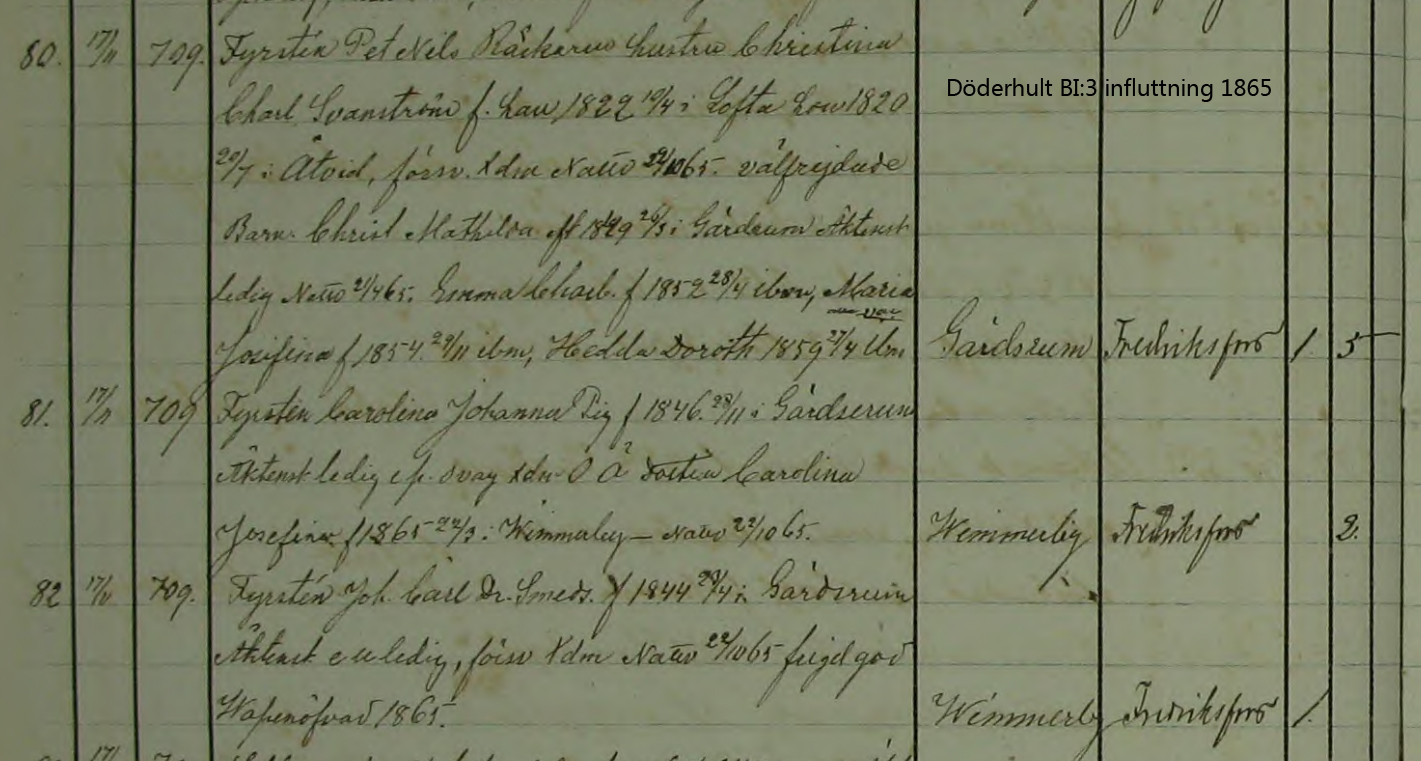 Döderhult BI:3 influttning 1865
80. 17/11 709. Fyrstén Pet Nils Räckarus hustru Christina
Charl Svanström f. han 1822 19/4 i Lofta hon 1820
20/7 i Åtvid, försv. Xdm Nattv 22/10 65. välfrejdade
Barn. Christ Mathilda f 1849 26/3 i Gårdsrum Äktenst
ledig Nattv 2/4 65. Emma Charl. f 1852 28/4 ibm, Maria
Josifina f 1854. 29/11 ibm, Hedda Doroth 1859 27/4 ibm Gårdsrum Fredriksfors 1 5
81. 17/11 709 Fyrstén Carolina Johanna Pig f 1846. 29/11 i Gårdserum
Äktenst ledig svag Xdm O Å Dotter Carolina
Josefina f 1865 22/3 i Wimmerby — Nattv 22/10 65. Wimmerby Fredriksfors 2.
82 17/11 709. Fyrstén Joh. Carl Dr. Smeds. f 1844 29/4 i Gårdsrum
Äktenst ledig, försv Xdm Nattv 22/10 65 frejd god
Wapenöfvad 1865. Wimmerby Fredriksfors 1.